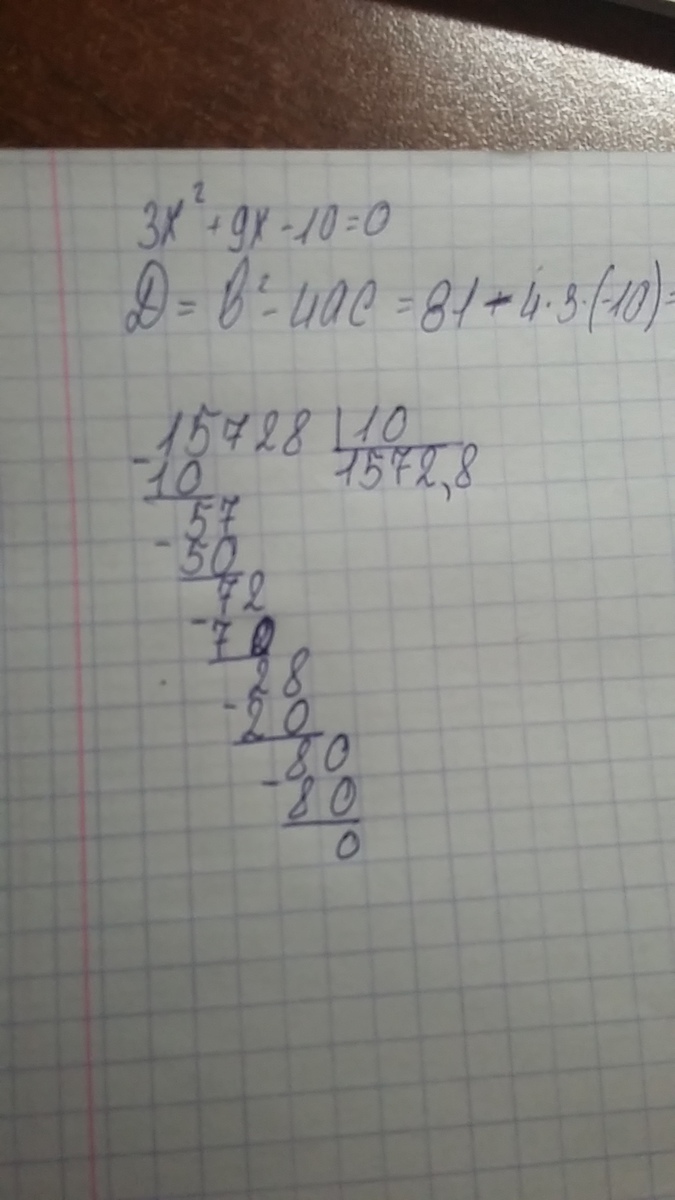 3x² + 9x - 10 = 0
D = b² - 4ac = 81 - 4·3·(-10) =
-15728 |10
10 1572,8
57
-50
72
-70
28
-20
80
-80
0